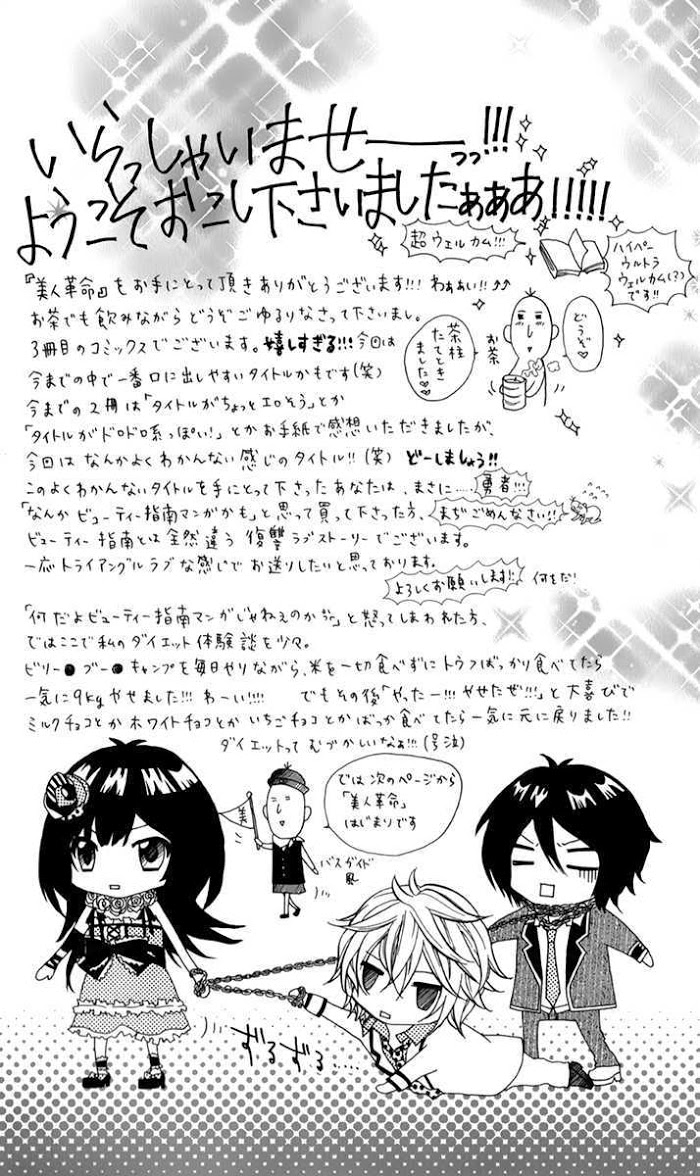 いらっしゃいませーーっっ!!!
ようこそおこし下さいましたぁぁあ!!!!!
超ウェルカム!!!
ハイパー
ウルトラ
ウェルカム(?)
です!!
『美人革命』をお手にとって頂きありがとうございます!!! わぁぁい!!
お茶でも飲みながらどうぞごゆるりなさって下さいまし。
3冊目のコミックスでございます。嬉しすぎる!!! 今回は
今までの中で一番口に出しやすいタイトルかもです(笑)
どうぞ♡
お茶
茶柱
たてとき
ました♡
今までの2冊は「タイトルがちょっとエロそう」とか
「タイトルがドロドロ系っぽい!」とかお手紙で感想いただきましたが、
今回はなんかよくわかんない感じのタイトル!! (笑) どーしましょう!!
このよくわかんないタイトルを手にとって下さったあなたは、まさに……勇者!!!
「なんかビューティー指南マンガかも」と思って買って下さった方、まぢごめんなさい!!
ビューティー指南とは全然違う復讐ラブストーリーでございます。
一応トライアングルラブな感じでお送りしたいと思っております。
よろしくお願いします!! 何をだ!
「何だよビューティー指南マンガじゃねぇのか」と怒ってしまわれた方、
ではここで私のダイエット体験談を少々。
ビリー●ブー●キャンプを毎日やりながら、米を一切食べずにトウフばっかり食べてたら
一気に9kgやせました!!! わーい!!!! でもその後「やったー!!! やせたぜ!!!」と大喜びで
ミルクチョコとかホワイトチョコとかいちごチョコとかばっか食べてたら一気に元に戻りました!!
ダイエットってむづかしいなぁ!!! (号泣)
美
では次のページから
「美人革命」
はじまりです
バスガイド
風
ずるずる……